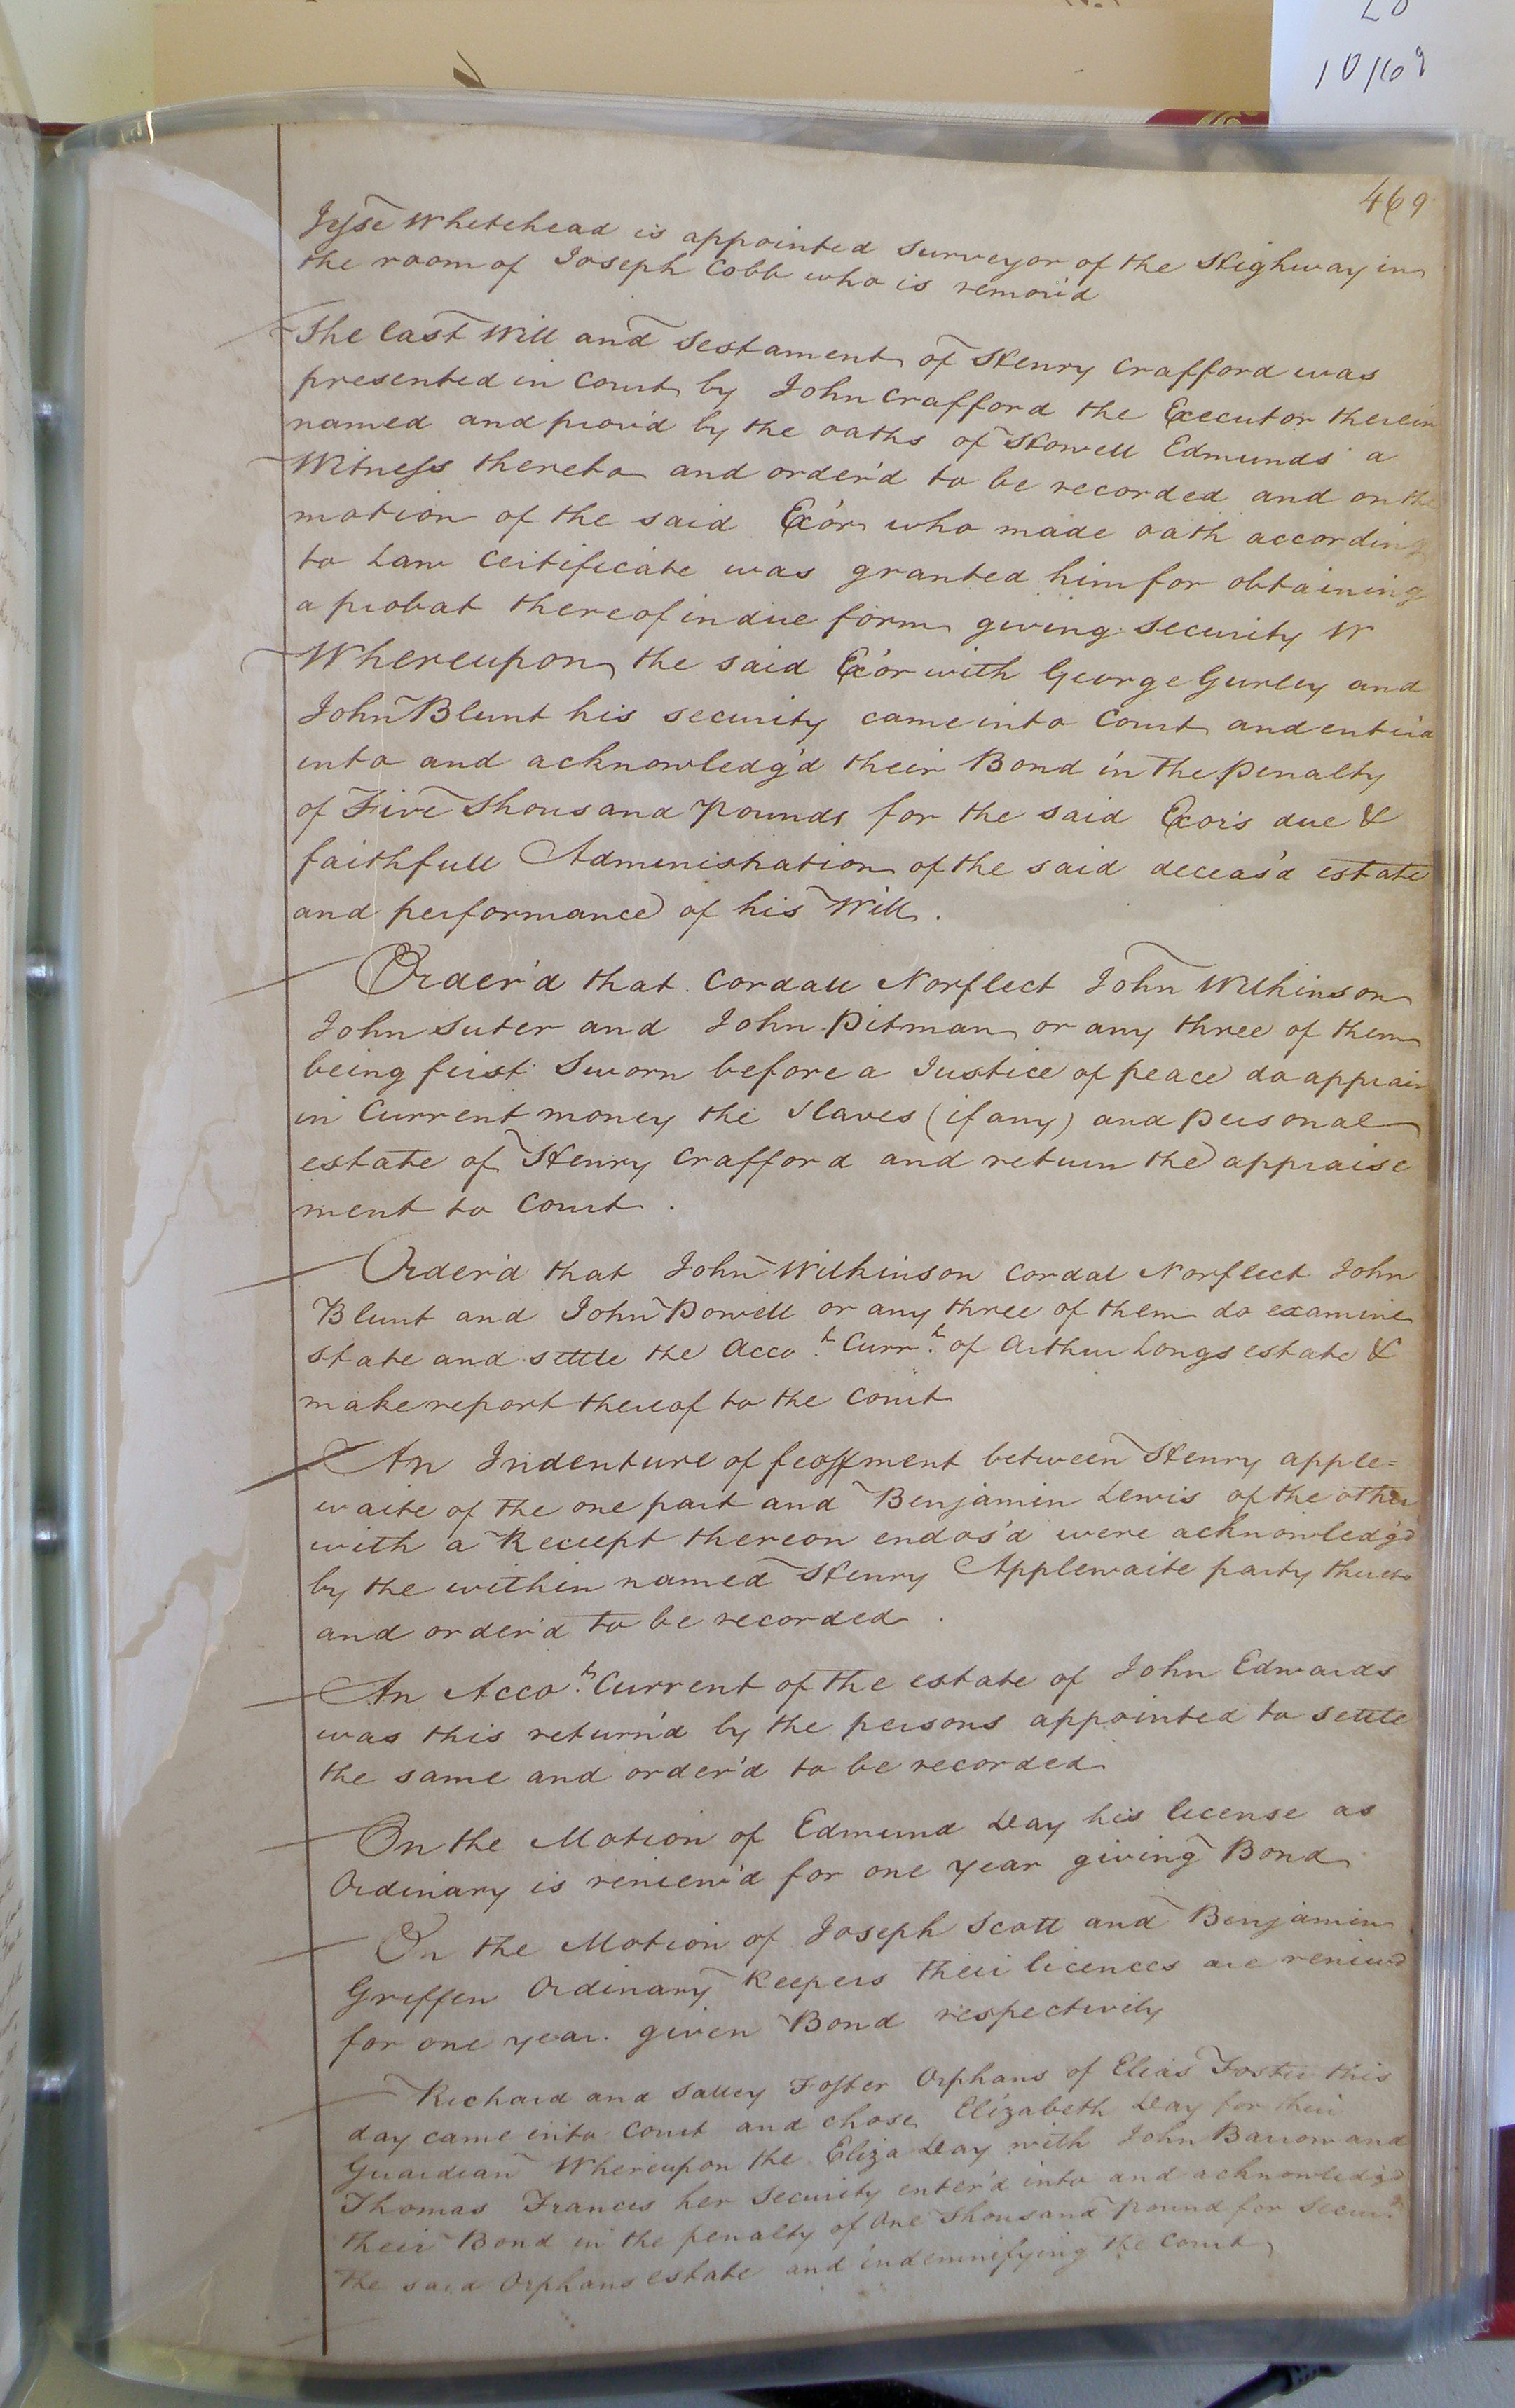 20
10/69
469
Jesse Whitehead is appointed surveyor of the Highway in
the room of Joseph Cobb who is remov'd
The last Will and Testament of Henry Crafford was
presented in Court by John Crafford the Executor therein
named and prov'd by the oaths of Howell Edmunds a
Witness thereto and order'd to be recorded and on the
motion of the said Ex'or who made oath according
to Law Certificate was granted him for obtaining
a probat thereof in due form giving security W
Whereupon the said Ex'or with George Gurley and
John Blunt his security came into Court and enter'd
into and acknowledg'd their Bond in the penalty
of Five Thousand Pounds for the said Exors due &
faithfull Administration of the said deceas'd estate
and performance of his Will.
Order'd that Cordall Norfleet John Wilkinson
John Suter and John Pitman or any three of them
being first Sworn before a Justice of peace do apprais
in Current money the Slaves (if any) and personal
estate of Henry Crafford and return the appraise
ment to Court.
Order'd that John Wilkinson Cordal Norfleet John
Blunt and John Powell or any three of them do examine
state and settle the Acco.t Curr.t of Arthur Longs estate &
make report thereof to the Court
An Indenture of feoffment between Henry apple=
waite of the one part and Benjamin Lewis of the other
with a Receipt thereon endos'd were acknowledg'd
by the within named Henry Applewaite party thereto
and order'd to be recorded.
An Acco.t Current of the estate of John Edwards
was this return'd by the persons appointed to settle
the same and order'd to be recorded
On the Motion of Edmund Day his license as
Ordinary is reniew'd for one year giving Bond
On the Motion of Joseph Scott and Benjamin
Griffen Ordinary Keepers their licences are reniewd
for one year. given Bond respectively
Richard and Salley Foster Orphans of Elias Foster this
day came into Court and chose Elizabeth Day for their
Guardian Whereupon the Eliza Day with John Barrow and
Thomas Francis her Security enter'd into and acknowledg'd
their Bond in the penalty of One Thousand pound for Secur.g
the said Orphans estate and indemnifying the Court